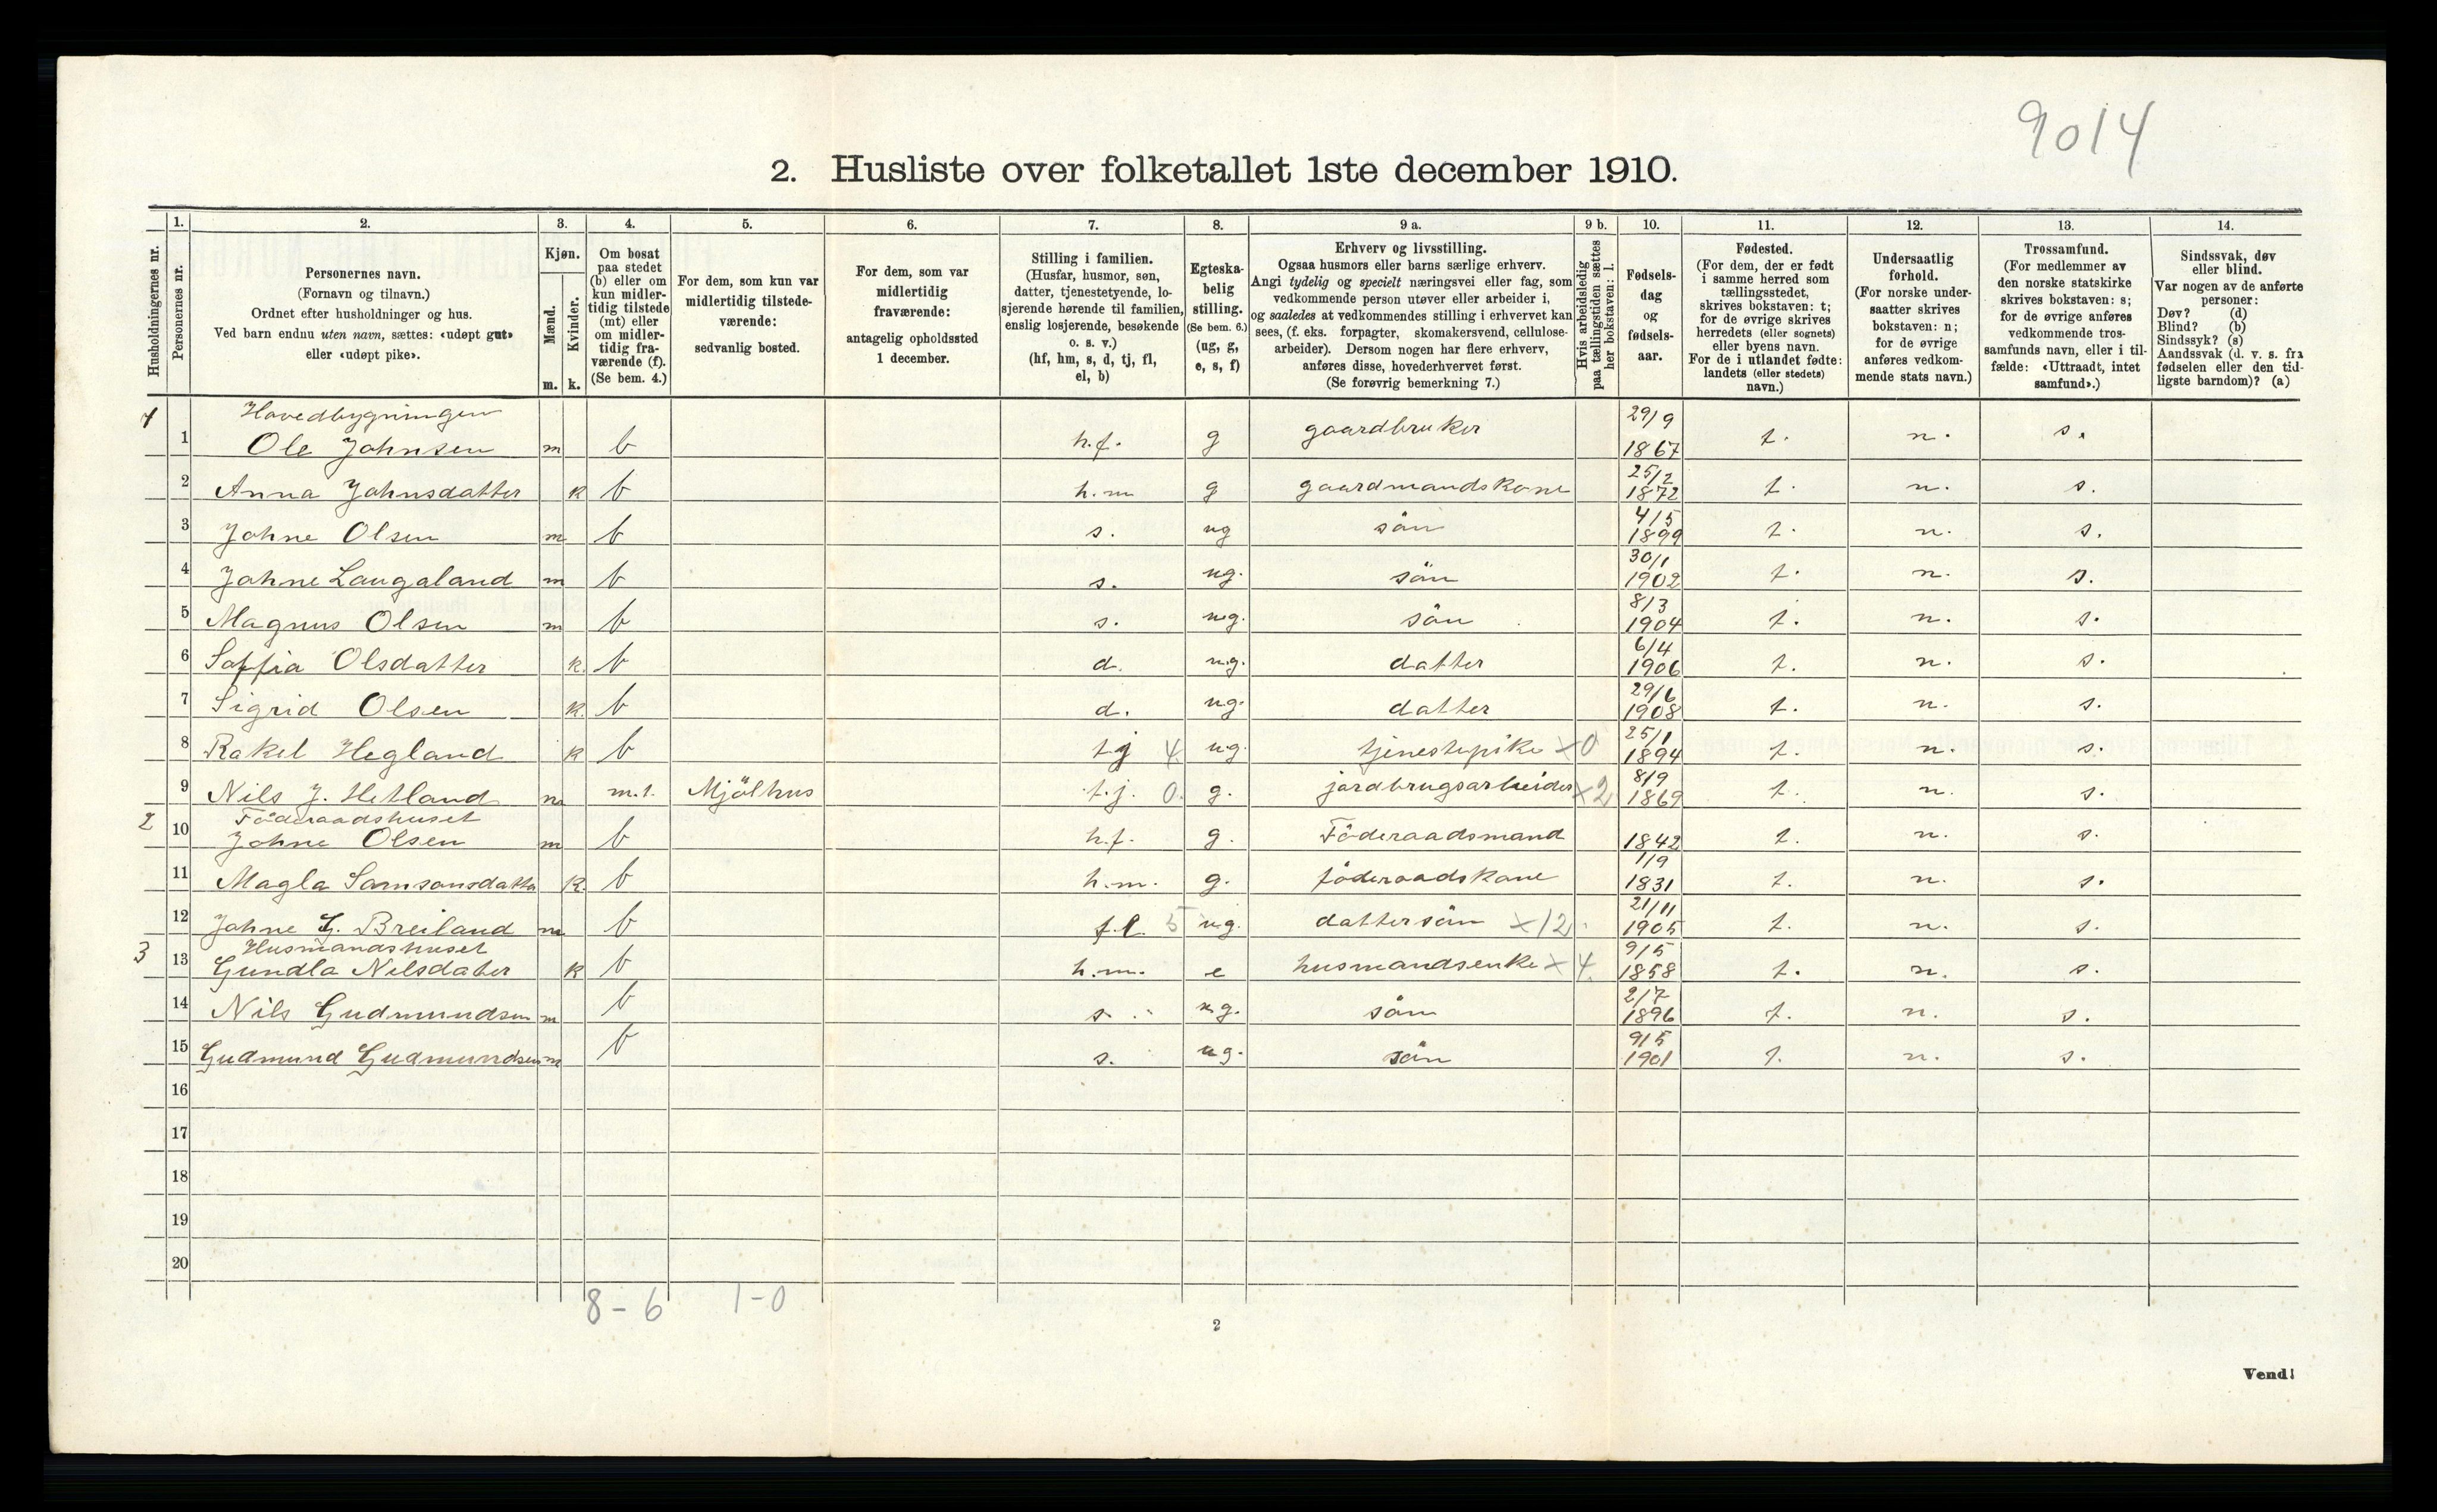 9014
2. Husliste over folketallet 1ste december 1910.
Husholdningernes nr.
1. Personernes nr.
2. Personernes navn.
(Fornavn og tilnavn.)
Ordnet efter husholdninger og hus.
Ved barn endnu uten navn, sættes: «udøpt gut»
eller «udøpt pike».
3. Kjøn.
Mænd. m.
Kvinder. k.
4. Om bosat
paa stedet
(b) eller om
kun midler-
tidig tilstede
(mt) eller
om midler-
tidig fra-
værende (f).
(Se bem. 4.)
5. For dem, som kun var
midlertidig tilstede-
værende:
sedvanlig bosted.
6. For dem, som var
midlertidig
fraværende:
antagelig opholdssted
1 december.
7. Stilling i familien.
(Husfar, husmor, søn,
datter, tjenestetyende, lo-
sjerende hørende til familien,
enslig losjerende, besøkende
o. s. v.)
(hf, hm, s, d, tj, fl,
el, b)
8. Egteska-
belig
stilling.
(Se bem. 6.)
(ug, g,
e, s, f)
9 a. Erhverv og livsstilling.
Ogsaa husmors eller barns særlige erhverv.
Angi tydelig og specielt næringsvei eller fag, som
vedkommende person utøver eller arbeider i,
og saaledes at vedkommendes stilling i erhvervet kan
sees, (f. eks. forpagter, skomakersvend, cellulose-
arbeider). Dersom nogen har flere erhverv,
anføres disse, hovederhvervet først.
(Se forøvrig bemerkning 7.)
9 b. Hvis arbeidsledig
paa tællingstiden sættes
her bokstaven: l.
10. Fødsels-
dag
og
fødsels-
aar.
11. Fødested.
(For dem, der er født
i samme herred som
tællingsstedet,
skrives bokstaven: t;
for de øvrige skrives
herredets (eller sognets)
eller byens navn.
For de i utlandet fødte:
landets (eller stedets)
navn.)
12. Undersaatlig
forhold.
(For norske under-
saatter skrives
bokstaven: n;
for de øvrige
anføres vedkom-
mende stats navn.)
13. Trossamfund.
(For medlemmer av
den norske statskirke
skrives bokstaven: s;
for de øvrige anføres
vedkommende tros-
samfunds navn, eller i til-
fælde: «Uttraadt, intet
samfund».)
14. Sindssvak, døv
eller blind.
Var nogen av de anførte
personer:
Døv? (d)
Blind? (b)
Sindssyk? (s)
Aandssvak (d. v. s. fra
fødselen eller den tid-
ligste barndom)? (a)
1 Hovedbygningen
1 Ole Johnsen m b h.f. g gaardbruker 29/9 1867 t. n. s.
2 Anna Johnsdatter k b h.m g gaardmandskone 25/2 1872 t. n. s.
3 Johne Olsen m b s. ug sön 4/5 1899 t. n. s.
4 Johne Laugaland m b s. ug. sön 30/1 1902 t. n. s.
5 Magnus Olsen m b s. ug. sön 8/3 1904 t. n. s.
6 Soffia Olsdatter k. b d. ug. datter 6/4 1906 t. n. s.
7 Sigrid Olsen k. b d. ug. datter 29/6 1908 t. n. s.
8 Rakel Hegland k b tj 4. ug. tjenestepike x0 25/1 1894 t. n. s.
9 Nils J. Hetland m m.t. Mjölhus t.j. 0. g. jordbrugsarbeider x2 8/9 1869 t. n. s.
2 Föderaadshuset
10 Johne Olsen m b h.f. g. Föderaadsmand 1842 t. n. s.
11 Magla Samsonsdatter k. b h.m. g. föderaadskone 1/9 1831 t. n. s.
12 Johne G. Breiland m b f.l. 5 ug. dattersön x12 21/11 1905 t. n. s.
3 Husmandshuset
13 Gundla Nilsdater k b h.m. e husmandsenke x4. 9/5 1858 t. n. s.
14 Nils Gudmundsen m b s. ug. sön 2/7 1896 t. n. s.
15 Gudmund Gudmundsen m b s. ug. sön 9/5 1901 t. n. s.
16
17
18
19
20
8-6 1-0
2
Vend!